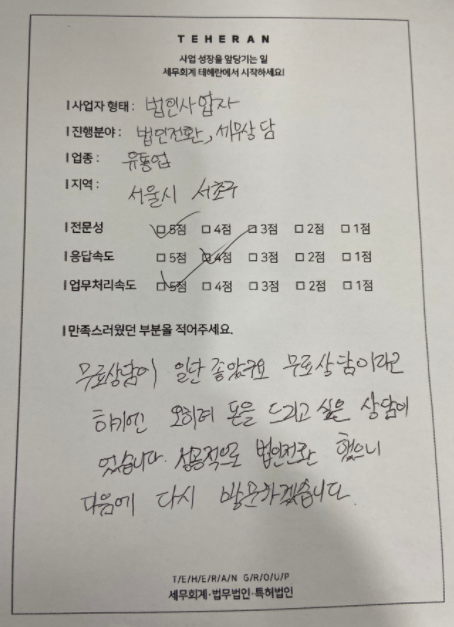 TEHERAN
사업 성장을 앞당기는 일
세무회계 테헤란에서 시작하세요!
사업자 형태 : 법인사업자
진행분야 : 법인전환, 세무상담
업종 : 유통업
지역 : 서울시 서초구
전문성 ☑ 5점 ☐ 4점 ☐ 3점 ☐ 2점 ☐ 1점
응답속도 ☐ 5점 ☑ 4점 ☐ 3점 ☐ 2점 ☐ 1점
업무처리속도 ☑ 5점 ☐ 4점 ☐ 3점 ☐ 2점 ☐ 1점
만족스러웠던 부분을 적어주세요.
무료상담이 일단 좋았구요 무료상담이라고
하기엔 오히려 돈을 드리고 싶은 상담이
었습니다. 성공적으로 법인전환 했으니
다음에 다시 방문하겠습니다.
T/E/H/E/R/A/N G/R/O/U/P
세무회계·법무법인·특허법인